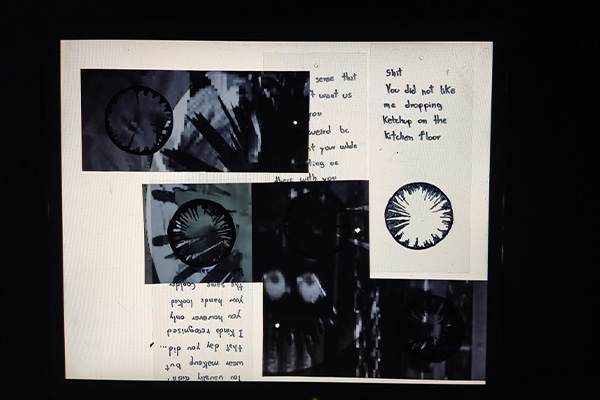 sense that
want us
you
weird bc
your while
us
there with you
shit
You did not like
me dropping
Ketchup on the
kitchen floor
You usually didn't
wear makeup but
that day you did...
I kinda recognised
you however only
your hands looked
the same